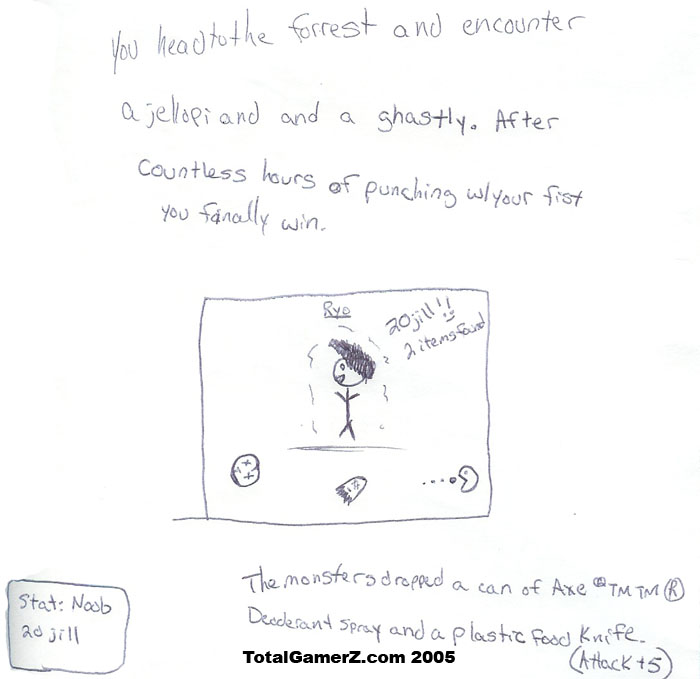 You head to the forrest and encounter
a jellopi and and a ghastly. After
Countless hours of punching w/your fist
you finally win.
Ryo
20 jill!!
2 items found
The monsters dropped a can of Axe ® TM TM ®
Deoderant spray and a plastic food Knife.
(Attack +5)
Stat: Noob
20 jill
TotalGamerZ.com 2005